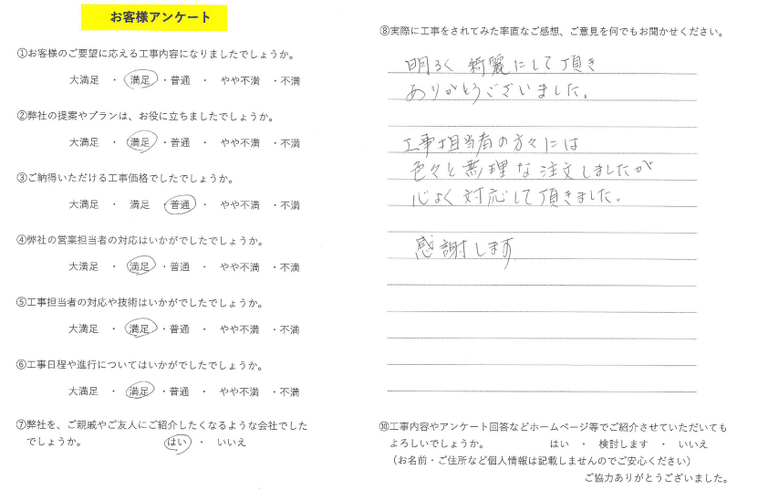 お客様アンケート
①お客様のご要望に応える工事内容になりましたでしょうか。
大満足 ・ 満足 ・普通 ・ やや不満 ・不満
②弊社の提案やプランは、お役に立ちましたでしょうか。
大満足 ・ 満足 ・普通 ・ やや不満 ・不満
③ご納得いただける工事価格でしたでしょうか。
大満足 ・ 満足 ・普通 ・ やや不満 ・不満
④弊社の営業担当者の対応はいかがでしたでしょうか。
大満足 ・ 満足 ・普通 ・ やや不満 ・不満
⑤工事担当者の対応や技術はいかがでしたでしょうか。
大満足 ・ 満足 ・普通 ・ やや不満 ・不満
⑥工事日程や進行についてはいかがでしたでしょうか。
大満足 ・ 満足 ・普通 ・ やや不満 ・不満
⑦弊社を、ご親戚やご友人にご紹介したくなるような会社でした
でしょうか。 はい ・ いいえ
⑧実際に工事をされてみた率直なご感想、ご意見を何でもお聞かせください。
明るく 綺麗にして頂き
ありがとうございました。
工事担当者の方々には
色々と無理な注文しましたが
心よく対応して頂きました。
感謝します
⑩工事内容やアンケート回答などホームページ等でご紹介させていただいても
よろしいでしょうか。 はい ・ 検討します ・ いいえ
（お名前・ご住所など個人情報は記載しませんのでご安心ください）
ご協力ありがとうございました。